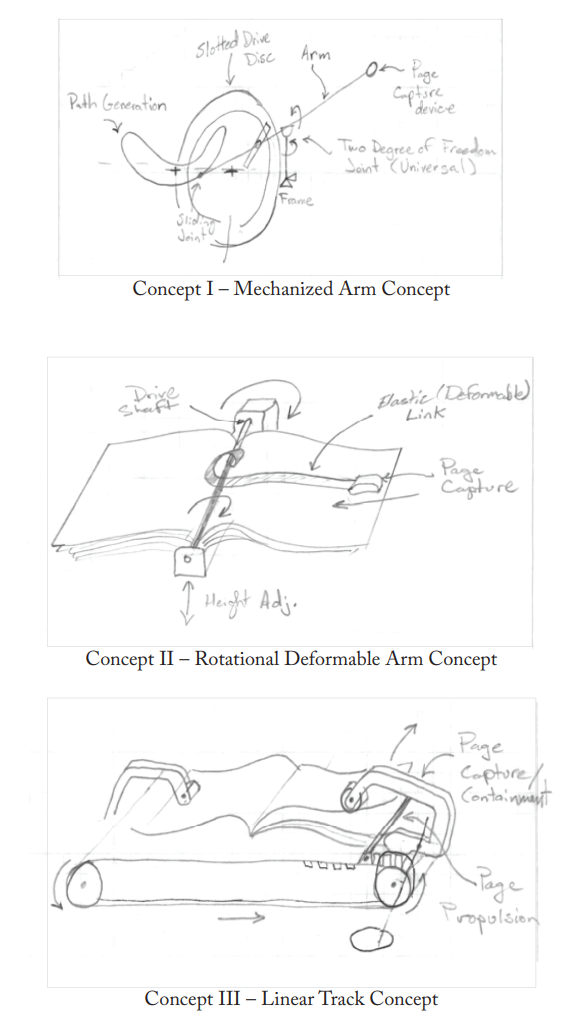 Slotted Drive
Disc
Arm
Page
Capture
device
Path Generation
Two Degree of Freedom
Joint (Universal)
Frame
Sliding
Joint
Concept I – Mechanized Arm Concept
Drive
Shaft
Elastic (Deformable)
Link
Page
Capture
Height Adj.
Concept II – Rotational Deformable Arm Concept
Page
Capture/
Containment
Page
Propulsion
Concept III – Linear Track Concept